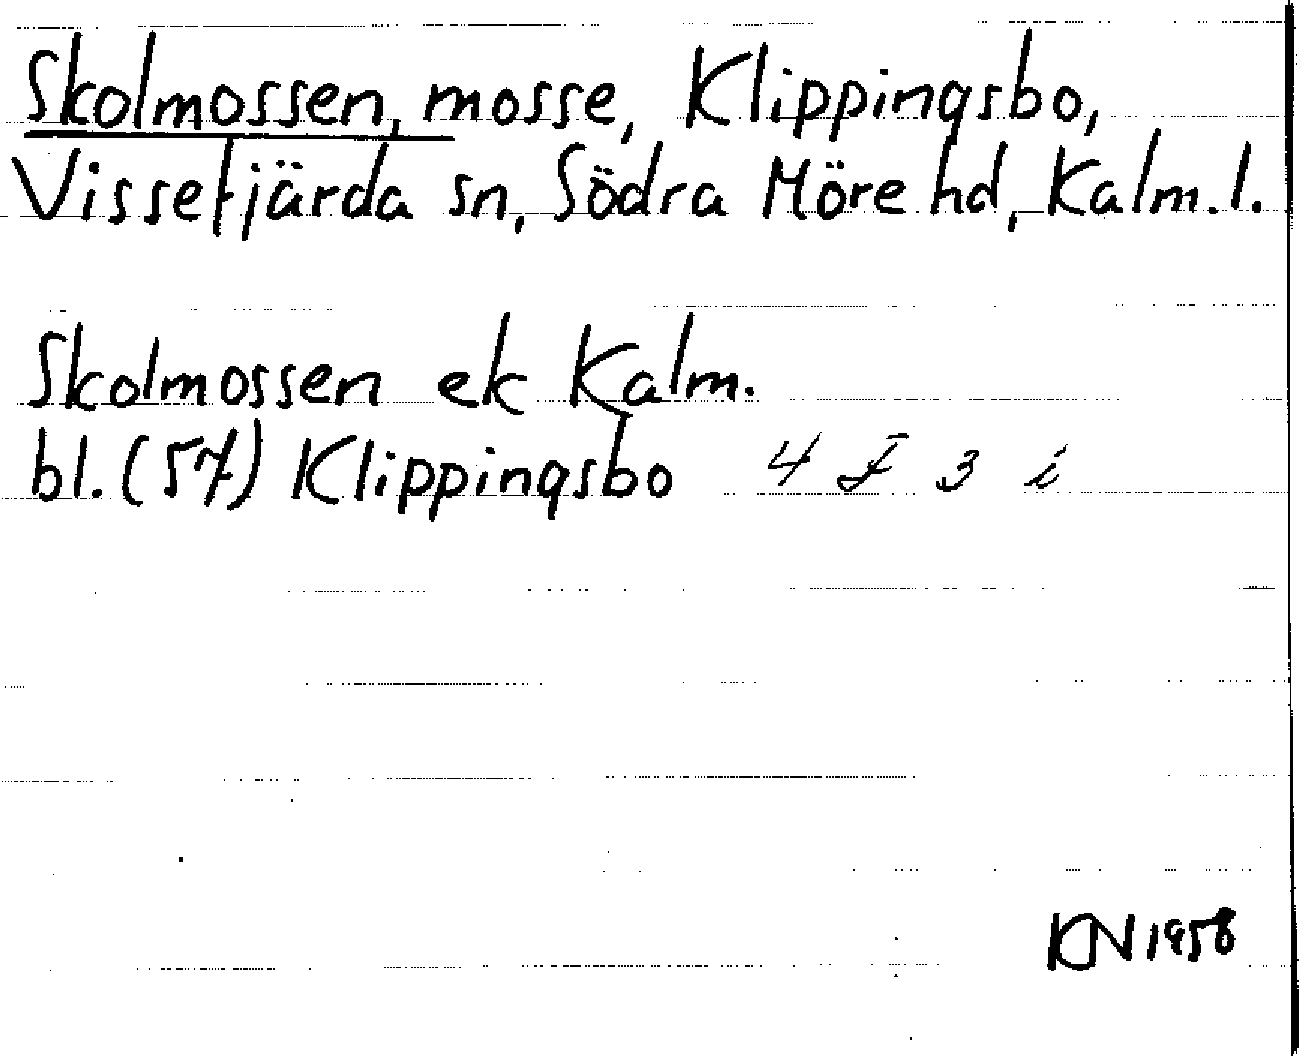 Skolmossen, mosse, Klippingsbo,
Vissefjärda sn, Södra Möre hd, Kalm. l.
Skolmossen ek Kalm.
bl. (57) Klippingsbo 4 F 3 i
KN 1958